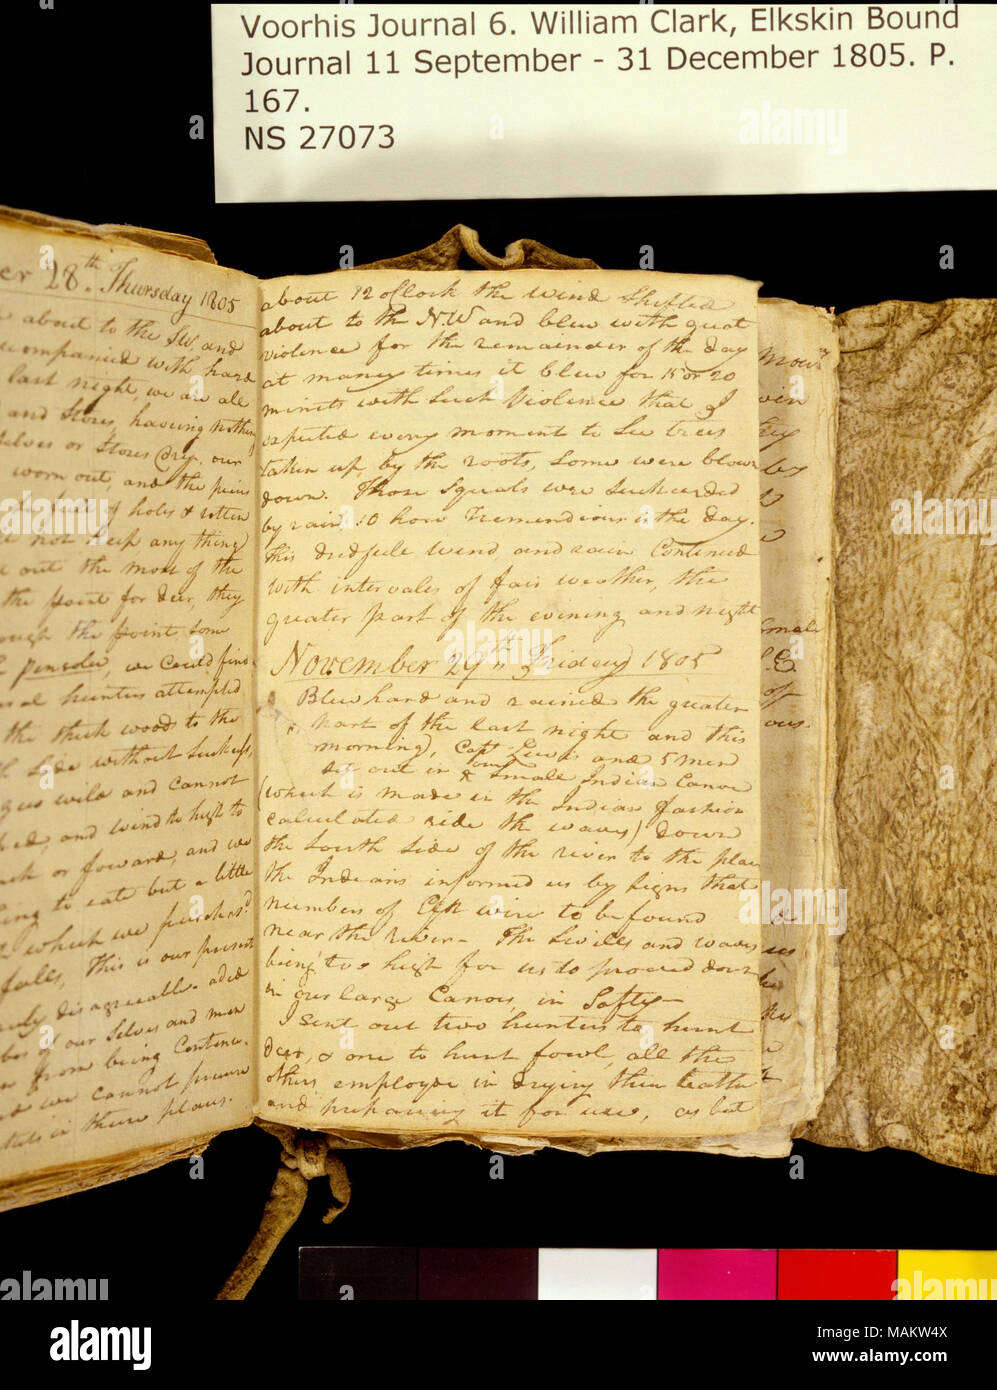 Voorhis Journal 6. William Clark, Elkskin Bound
Journal 11 September - 31 December 1805. P.
167.
NS 27073
er 28th Thursday 1805
about to the SW. and
ccompanied with hard
last night, we are all
and Stores, haveing nothing
selves or Stores Dry. our
worn out, and the pieces
full of holes & rotten
not keep any thing
out the most of the
the point for deer, they
ough the point Some
peninsolu, we Could find
hunters attempted
the thick woods to the
Side without Suckcess,
wild and Cannot
and wind too high to
ack or foward, and we
ing to eate but a little
which we purchasd
falls, This is our present
disagreeable. aded
of our Selves and men
from being Continu-
we Cannot precure
in these plains.
about 12 oClock the wind Shifted
about to the N.W. and blew with great
violence for the remainder of the day
at maney times it blew for 15 or 20
minits with Such violence that I
expected every moment to See trees
taken up by the roots, Some were blown
down. Those Squals were Suckceeded
by rain !O how Tremendious is the day.
this dredfull wind, and rain Continued
with intervales of fair weather, the
greater part of the evening and night
November 29th Friday 1805
Blew hard and rained the greater
part of the last night and this
morning, Capt Lewis and 5 men
Set out in our Small Indian Canoe
(which is made in the Indian fashion
calculated ride the waves) down
the South Side of the river to the place
the Indians informed us by Signs that
numbers of Elk were to be found
near the river- The Swells and waves
being too high for us to proceed down
in our large Canoes, in Safty-
I Sent out two hunters to hunt
deer, & one to hunt fowl, all the
others employed in drying their leather
and prepareing it for use, as but
alamy
Image ID: MAKW4X
www.alamy.com